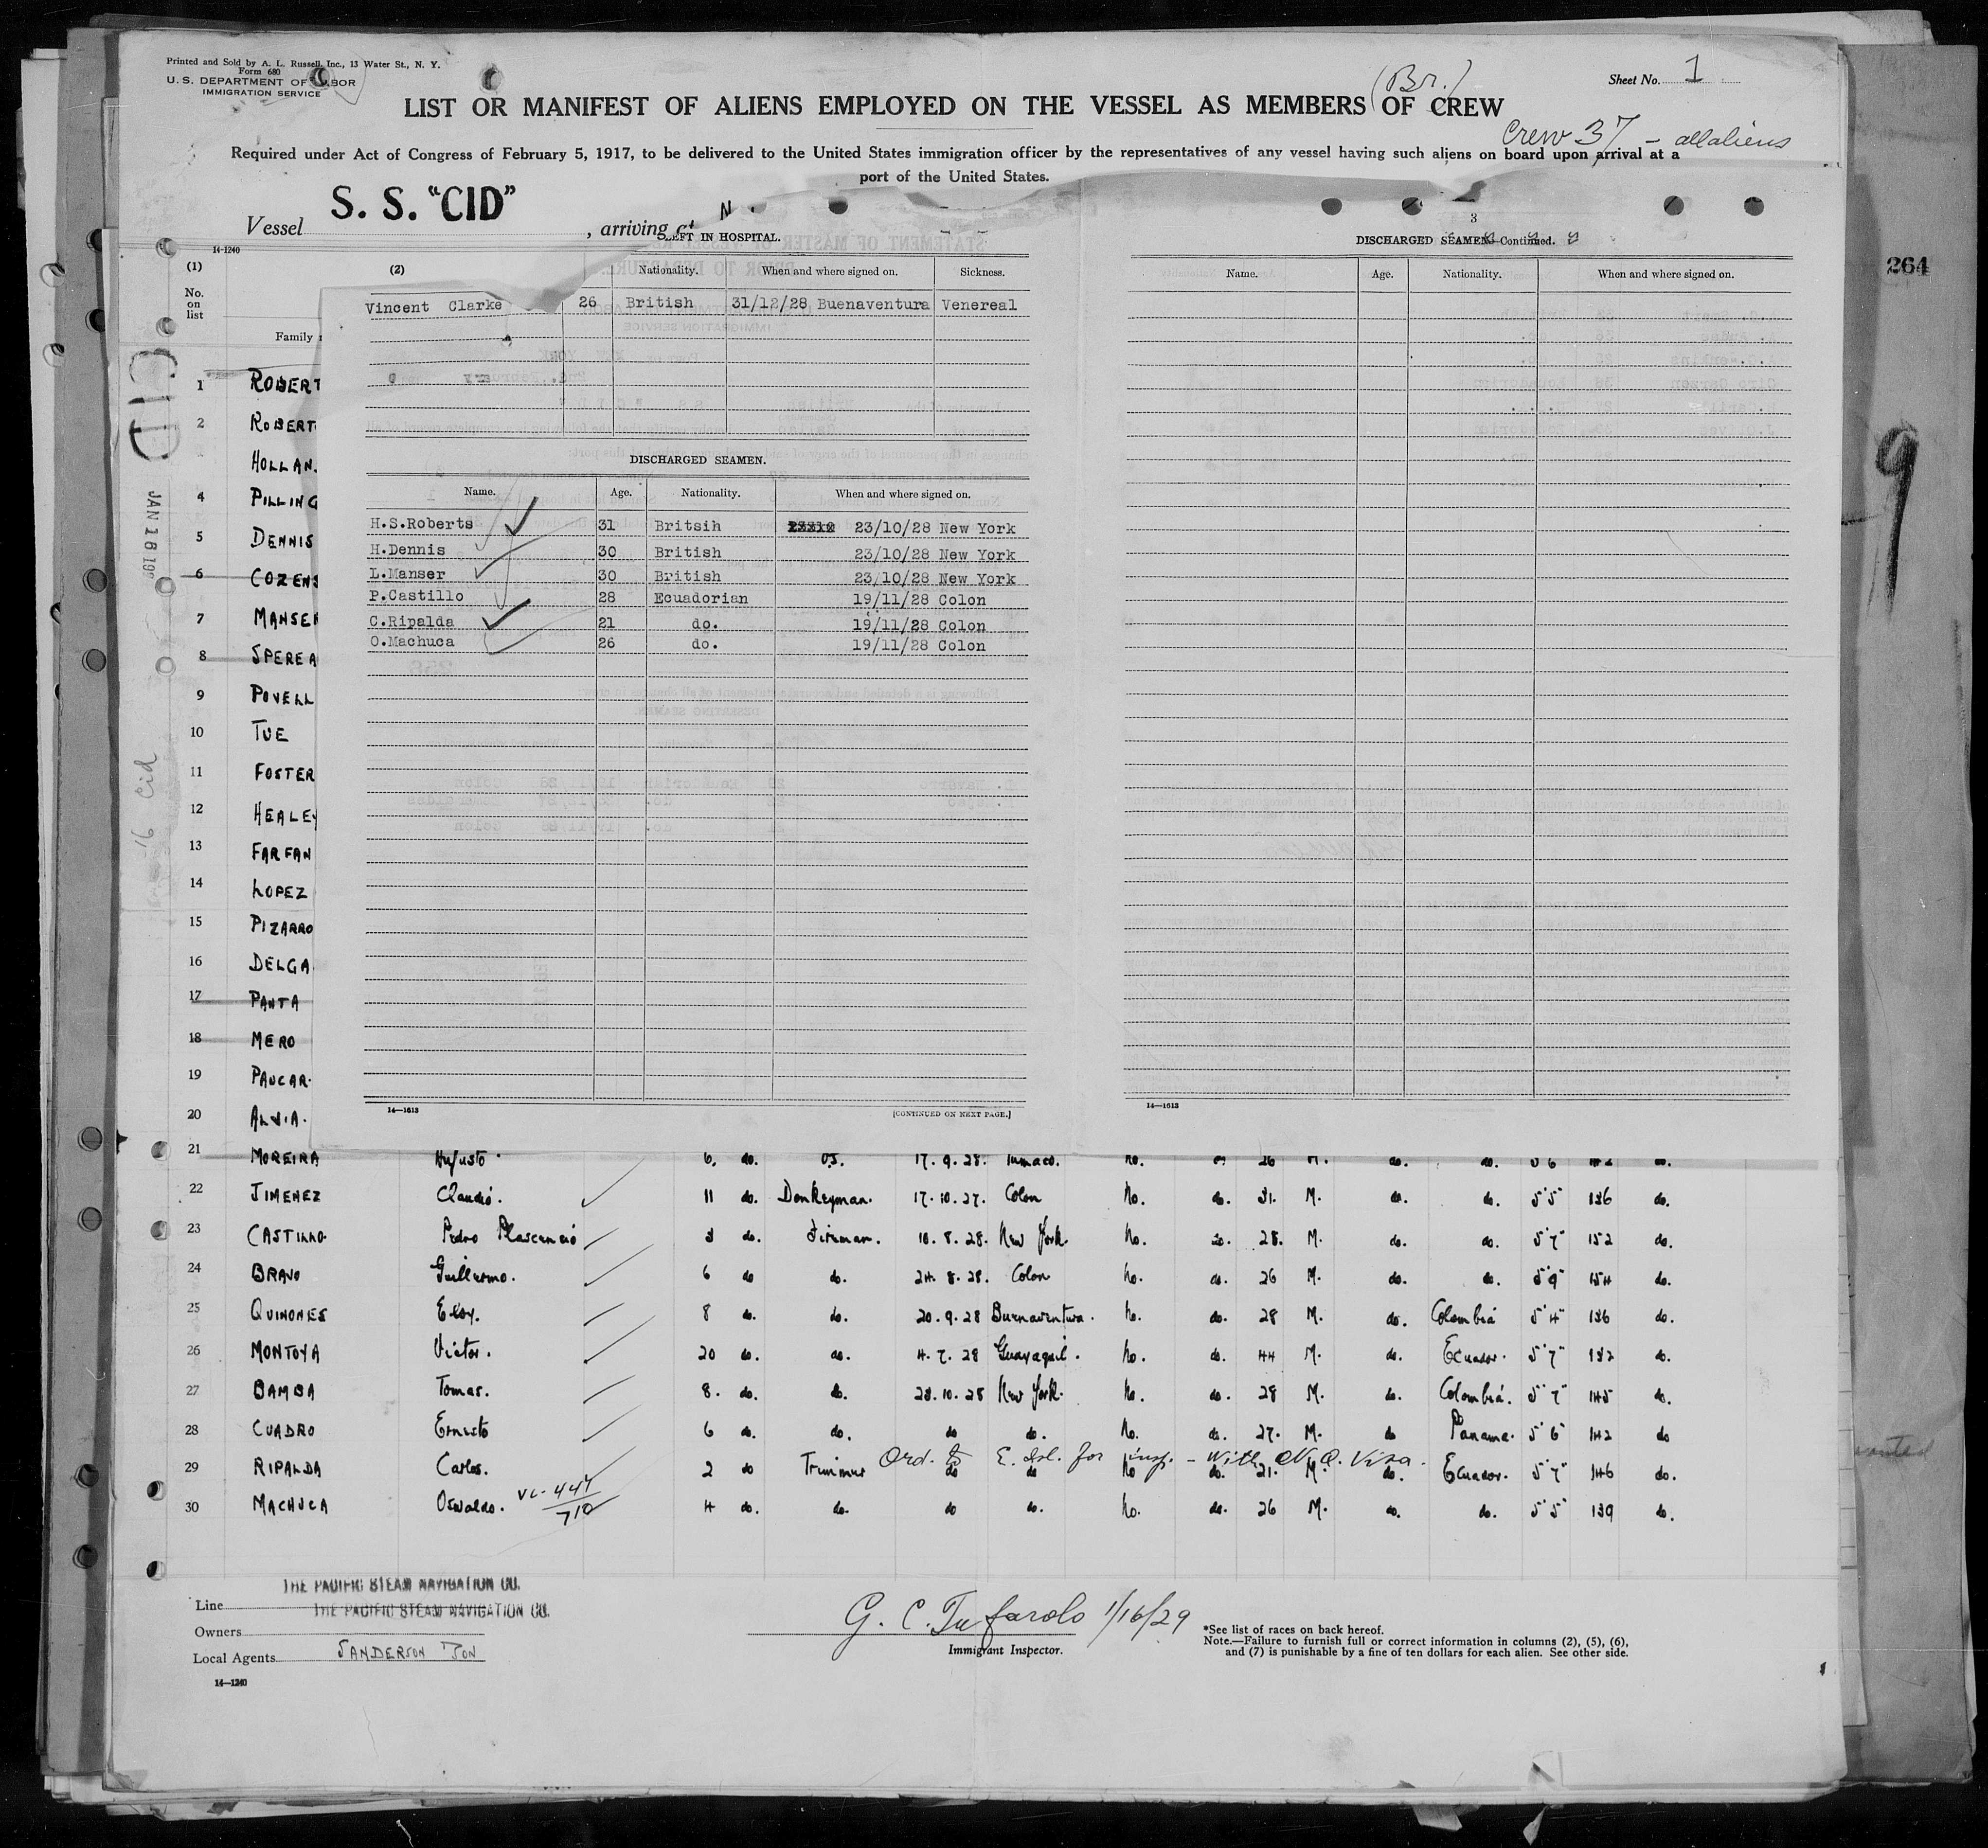 Printed and Sold by A. L. Russell, Inc., 13 Water St., N. Y.
Form 680
U. S. DEPARTMENT OF LABOR
IMMIGRATION SERVICE
Sheet No. 1
(Br.)
LIST OR MANIFEST OF ALIENS EMPLOYED ON THE VESSEL AS MEMBERS OF CREW
Crew 37 - all aliens
Required under Act of Congress of February 5, 1917, to be delivered to the United States immigration officer by the representatives of any vessel having such aliens on board upon arrival at a
port of the United States.
Vessel S. S. "CID" , arriving at N
14-1240
LEFT IN HOSPITAL.
3
DISCHARGED SEAMEN—Continued.
(1) (2) Nationality. When and where signed on. Sickness.
Name. Age. Nationality. When and where signed on.
264
No. on list
Vincent Clarke 26 British 31/12/28 Buenaventura Venereal
Family
CID
JAN 16 19
16 Cid
9
1 ROBERT
2 ROBERT
HOLLAN
4 PILLING
5 DENNIS
6 COZENS
7 MANSER
8 SPEREA
9 POVELL
10 TUE
11 FOSTER
12 HEALEY
13 FARFAN
14 LOPEZ
15 PIZARRO
16 DELGA
17 PANTA
18 MERO
19 PAUCAR
20 ALVIA.
DISCHARGED SEAMEN.
Name. Age. Nationality. When and where signed on.
H.S.Roberts 31 Britsih 23/10/28 New York
H.Dennis 30 British 23/10/28 New York
L.Manser 30 British 23/10/28 New York
P.Castillo 28 Ecuadorian 19/11/28 Colon
C.Ripalda 21 do. 19/11/28 Colon
O.Machuca 26 do. 19/11/28 Colon
14—1613 [CONTINUED ON NEXT PAGE.]
14—1613
21 MOREIRA Augusto 6. do. 17.9.28. Tumaco. No. 26 M. do. do. 5'6 142 do.
22 JIMENEZ Claudio. 11 do. Donkeyman. 17.10.27. Colon No. do. 31. M. do. do. 5'5" 136 do.
23 CASTILLO Pedro Plascencio 3 do. Fireman. 10.8.28. New York. No. do. 28. M. do. do. 5'7" 152 do.
24 BRAVO Guillermo. 6 do do. 24.8.28. Colon No. do. 26 M. do. do. 5'9" 154 do.
25 QUINONES Eloy. 8 do. do. 20.9.28 Buenaventura. No. do. 28 M. do. Colombia 5'4" 136 do.
26 MONTOYA Victor. 20 do. do. 4.7.28 Guayaquil. No. do. 44 M. do. Ecuador. 5'7" 132 do.
27 BAMBA Tomas. 8. do. do. 23.10.28 New York. No. do. 28 M. do. Colombia. 5'7" 145 do.
28 CUADRO Ernesto 6 do. do. do do. No. do. 27. M. do Panama. 5'6" 142 do
Ord. to E. Isl. for insp. - With N. Q. Visa.
29 RIPALDA Carlos. 2 do Trimmer do do No do. 21. M. do. Ecuador. 5'7" 146 do.
30 MACHUCA Oswaldo. 4 do. do. do do. No. do. 26 M. do. do. 5'5" 139 do.
VL-447
710
Line THE PACIFIC STEAM NAVIGATION CO.
THE PACIFIC STEAM NAVIGATION CO.
Owners
Local Agents SANDERSON & SON
14—1240
G. C. Tufarolo 1/16/29
Immigrant Inspector.
*See list of races on back hereof.
Note.—Failure to furnish full or correct information in columns (2), (5), (6),
and (7) is punishable by a fine of ten dollars for each alien. See other side.